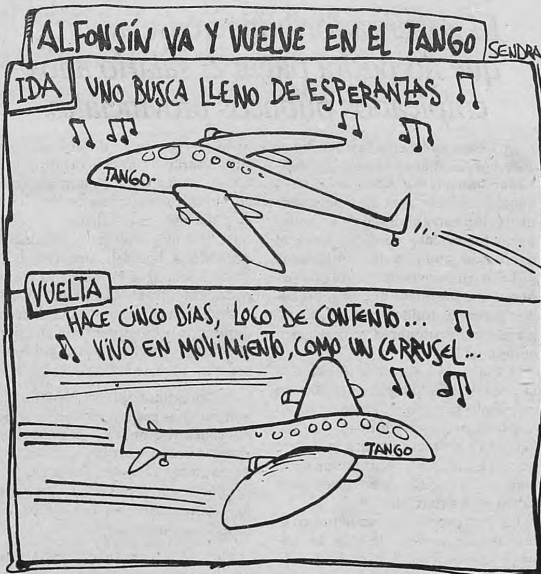 ALFONSÍN VA Y VUELVE EN EL TANGO
SENDRA
IDA
UNO BUSCA LLENO DE ESPERANZAS
TANGO-
VUELTA
HACE CINCO DÍAS, LOCO DE CONTENTO...
VIVO EN MOVIMIENTO, COMO UN CARRUSEL...
TANGO